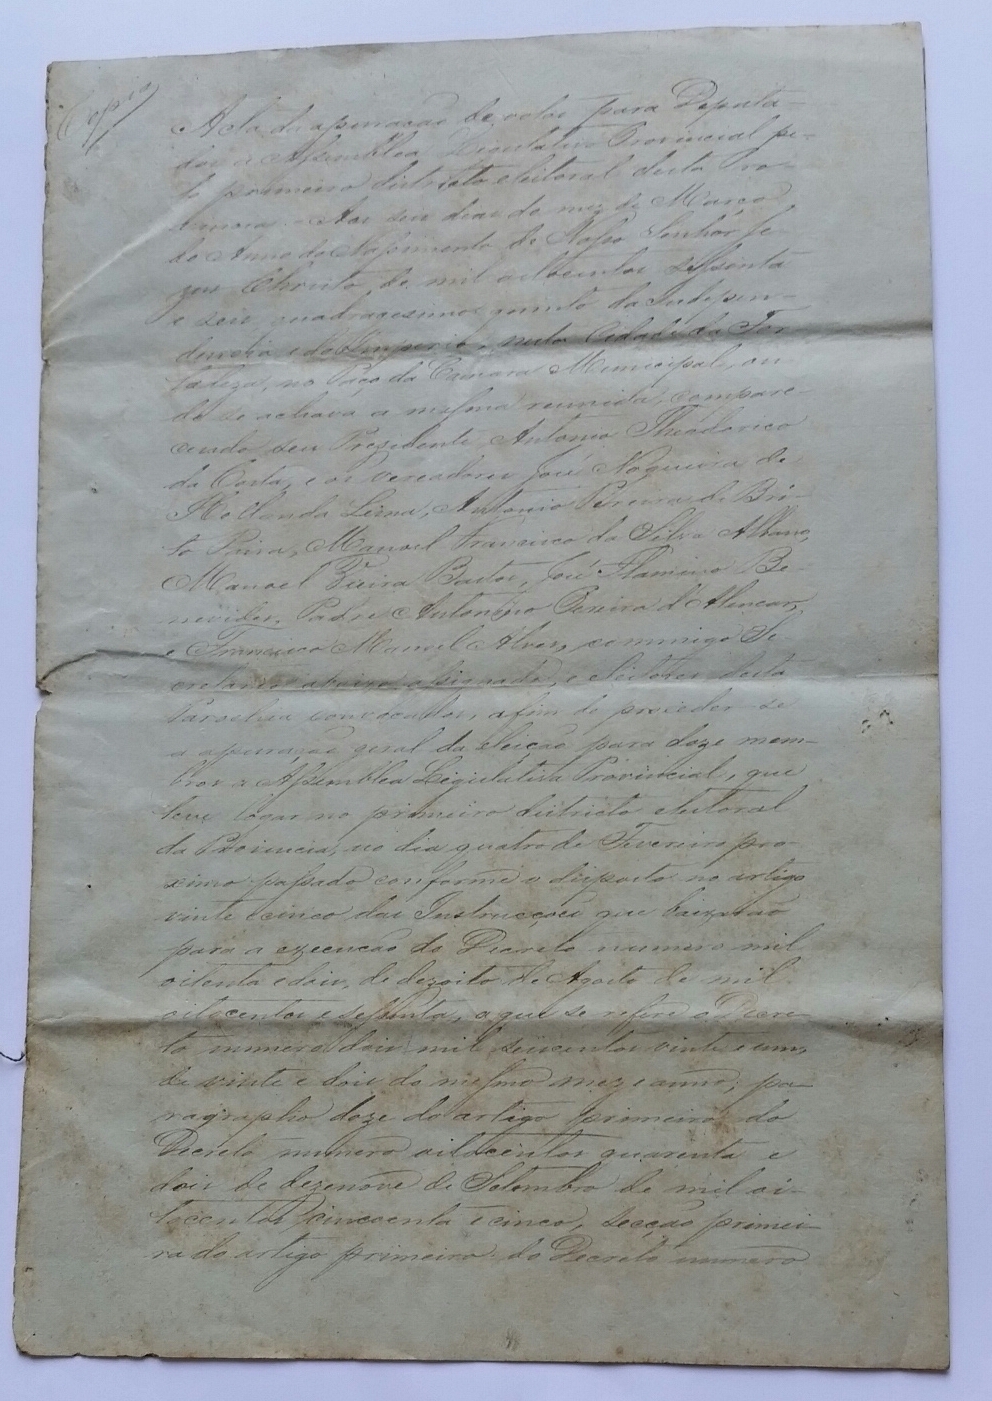 Copia
Acta da apuração de votos para Deputa-
dos a Assemblea Legislativa Provincial pe-
lo primeiro districto eleitoral desta Pro-
vincia. Aos seis dias do mez de Março
do Anno do Nascimento de Nosso Senhor Je-
zus Christo de mil oitocentos sessenta
e seis, quadragesimo quinto da Indepen-
dencia e do Imperio, nesta Cidade da For
taleza, no Paço da Camara Municipal, on
de se achava a mesma reunida, compare-
cendo seu Prezidente Antonio Theodorico
da Costa, e os vereadores José Nogueira de
Hollanda Lima, Antonio Pereira de Bri-
to Paiva, Manoel Francisco da Silva Albano,
Manoel Vieira Bastos, José Flaminio Be-
nevides, Padre Antonino Pereira d'Alencar,
e Francisco Manoel Alves, commigo Se-
cretario abaixo assignado, e Eleitores desta
Parochia convocados, afim de proceder-se
a apuração geral da eleição para doze mem-
bros a Assemblea Legislativa Provincial, que
teve logar no primeiro districto eleitoral
da Provincia, no dia quatro de Fevereiro pro-
ximo passado conforme o disposto no artigo
vinte e cinco das Instrucções que baixarão
para a execução do Decreto numero mil
oitenta e dois, de dezoito de Agosto de mil
oitocentos e sessenta, a que se refere o Decre-
to numero dois mil seiscentos vinte e um,
de vinte e dois do mesmo mez e anno; pa-
ragrapho doze do artigo primeiro do
Decreto numero oitocentos quarenta e
dois de dezenove de Setembro de mil oi-
tocentos cincoenta e cinco, secção primei-
ra do artigo primeiro do Decreto numero